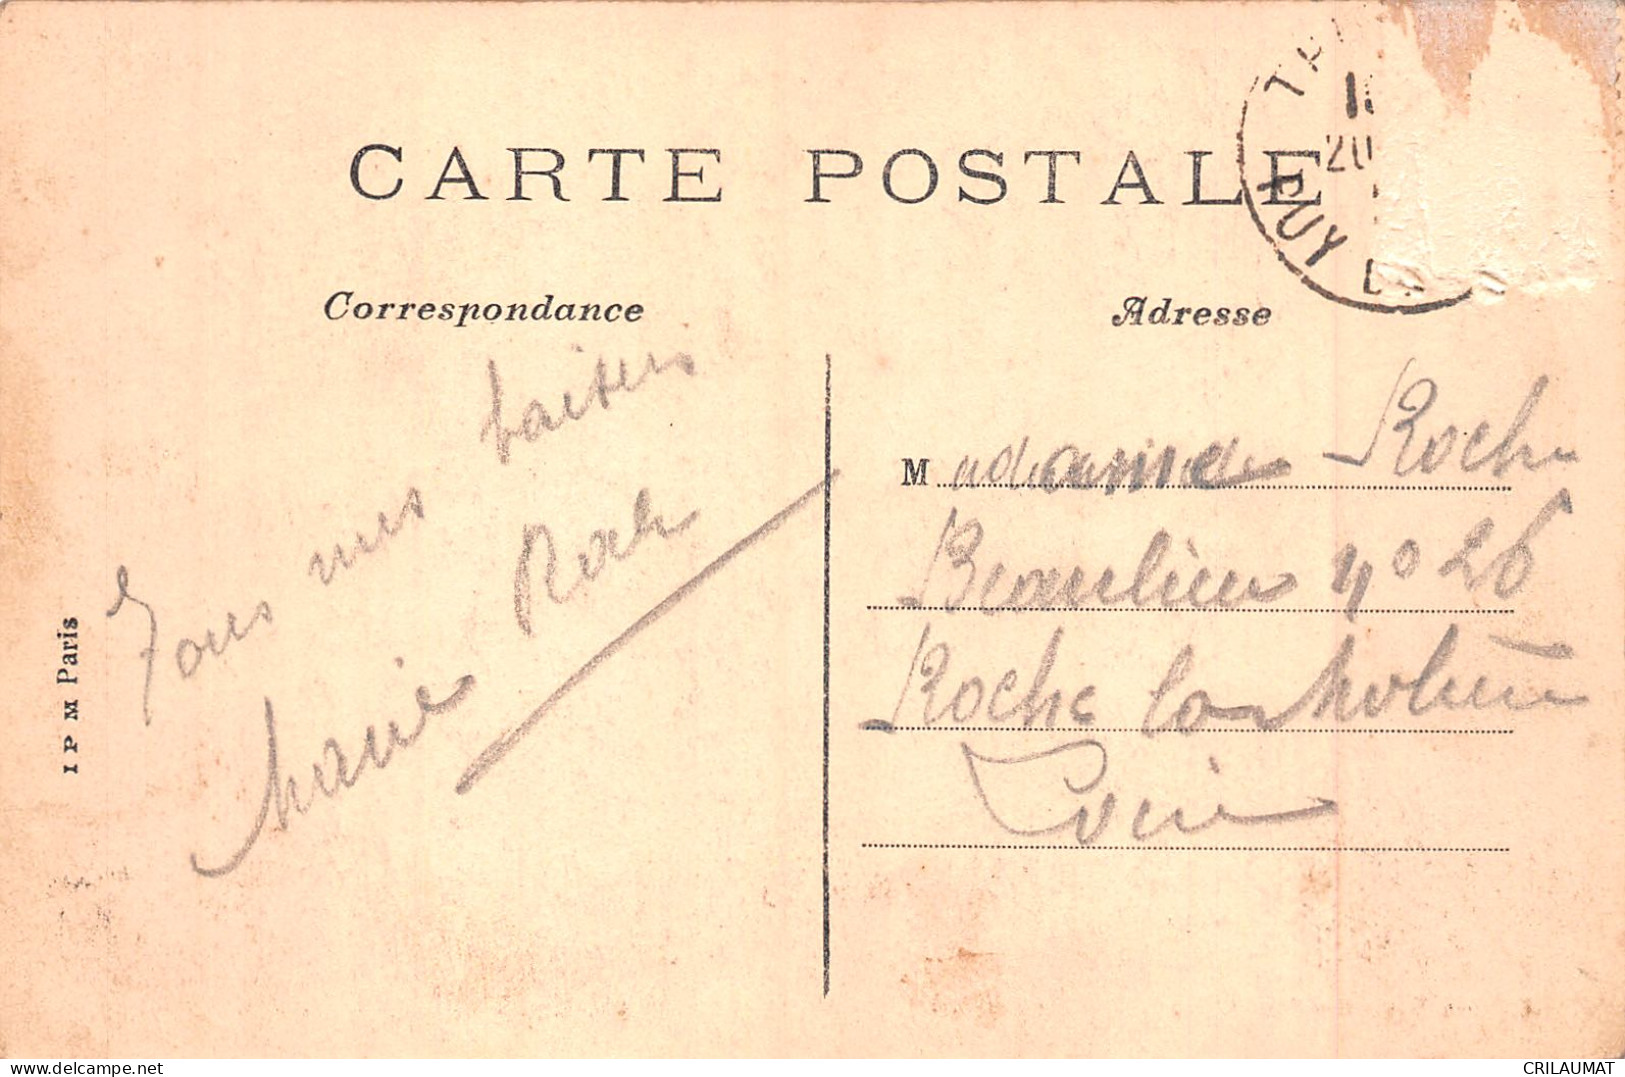 CARTE POSTALE
Correspondance
Adresse
Tous mes baisers
Marie Roche
Madame Roche
Beaulieu n° 26
Roche la Molière
Loire
I P M Paris
PUY
20
CRILAUMAT